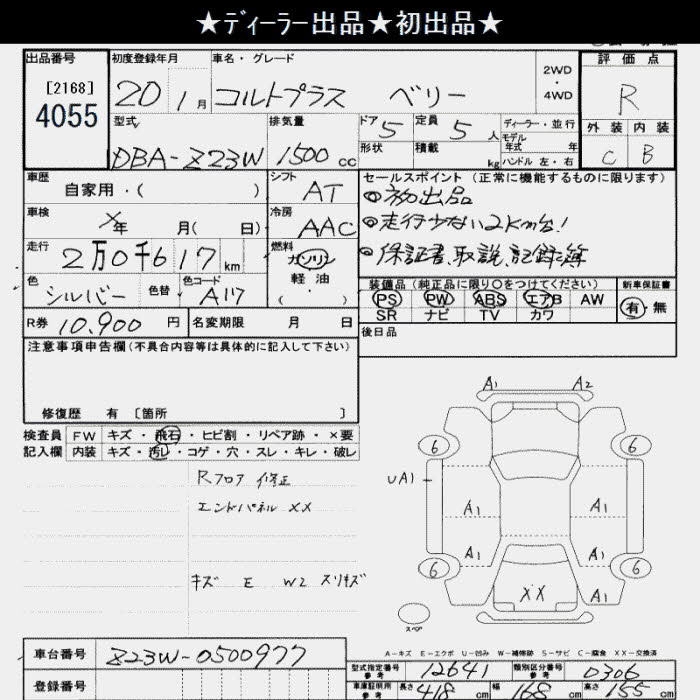 ★ディーラー出品★初出品★
出品番号 初度登録年月 車名・グレード 2WD・4WD 評価点
[2168] 4055 20 1月 コルトプラス ベリー R
型式 排気量 ドア 5 定員 5人 ディーラー・並行 外装 内装
DBA-Z23W 1500cc 形状 積載 kg モデル年式 年 C B
ハンドル 左・右
車歴 自家用・( ) シフト AT セールスポイント(正常に機能するものに限ります)
◎初出品
車検 X年 月( 日) 冷房 AAC ◎走行少ない2km台!
走行 2万0千617km 燃料 ガソリン 軽油 ( ) ◎保証書、取説、記録簿
色 シルバー 色替 色コード A117 装備品(純正品に限り○をつけてください) 新車保証書
PS PW ABS エアB AW 有・無
R券 10,900円 名変期限 月 日 SR ナビ TV カワ
後日品
注意事項申告欄(不具合内容等は具体的に記入して下さい)
修復歴 有 [箇所 ]
検査員 FW キズ・飛石・ヒビ割・リペア跡・×要
記入欄 内装 キズ・汚レ・コゲ・穴・スレ・キレ・破レ
Rフロア 修正
エンドパネル XX
キズ E W2 スリキズ
A1 A2
6 6
UA1
A1 A1
A1 A1
6 6
XX A1
スペア
A-キズ E-エクボ U-凹み W-補修跡 S-サビ C-腐食 XX-交換済
車台番号 Z23W-0500977
型式指定番号 参考 12641 類別区分番号 参考 0306
登録番号 車庫証明用 参考 長さ 418cm 幅 168cm 高さ 155cm